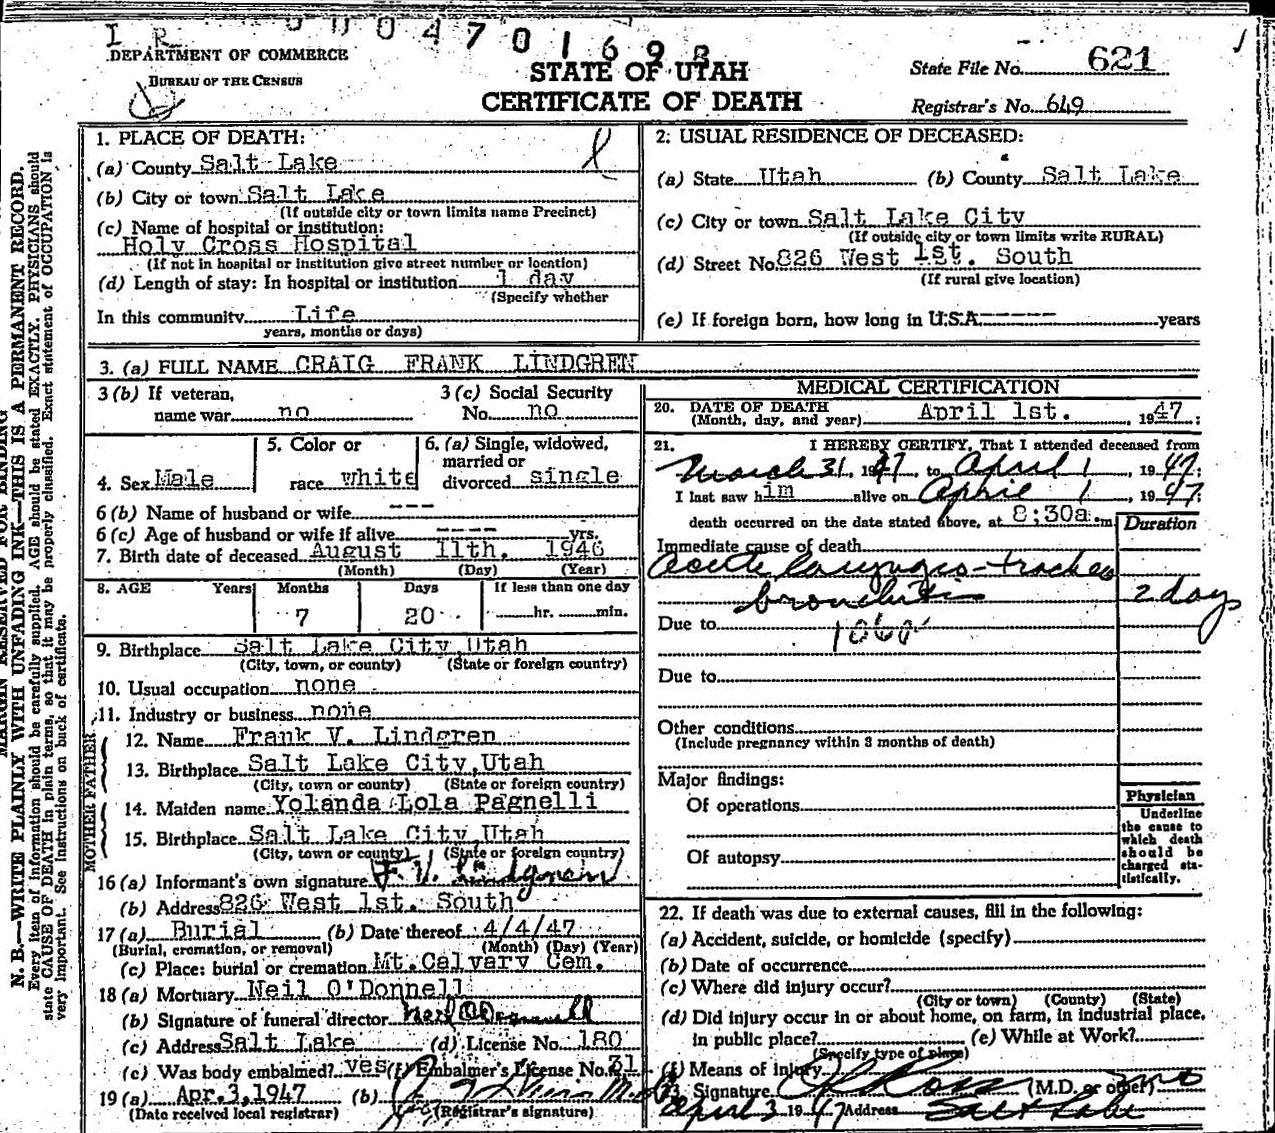 I R 0004701698
DEPARTMENT OF COMMERCE
BUREAU OF THE CENSUS
STATE OF UTAH
CERTIFICATE OF DEATH
State File No. 621
Registrar's No. 649
1. PLACE OF DEATH:
(a) County Salt Lake
(b) City or town Salt Lake
(If outside city or town limits name Precinct)
(c) Name of hospital or institution:
Holy Cross Hospital
(If not in hospital or institution give street number or location)
(d) Length of stay: In hospital or institution 1 day
(Specify whether
In this community Life
years, months or days)
2. USUAL RESIDENCE OF DECEASED:
(a) State Utah (b) County Salt Lake
(c) City or town Salt Lake City
(If outside city or town limits write RURAL)
(d) Street No. 826 West 1st. South
(If rural give location)
(e) If foreign born, how long in U.S.A. ----- years
3. (a) FULL NAME CRAIG FRANK LINDGREN
3 (b) If veteran, 3 (c) Social Security
name war no No. no
4. Sex Male
5. Color or
race white
6. (a) Single, widowed,
married or
divorced single
6 (b) Name of husband or wife ---
6 (c) Age of husband or wife if alive ---- yrs.
7. Birth date of deceased August 11th, 1946
(Month) (Day) (Year)
8. AGE Years Months Days If less than one day
7 20 hr. min.
9. Birthplace Salt Lake City, Utah
(City, town, or county) (State or foreign country)
10. Usual occupation none
11. Industry or business none
FATHER
12. Name Frank V. Lindgren
13. Birthplace Salt Lake City, Utah
(City, town or county) (State or foreign country)
MOTHER
14. Maiden name Yolanda Lola Pagnelli
15. Birthplace Salt Lake City Utah
(City, town or county) (State or foreign country)
16 (a) Informant's own signature F. V. Lindgren
(b) Address 826 West 1st. South
17 (a) Burial (b) Date thereof 4/4/47
(Burial, cremation, or removal) (Month) (Day) (Year)
(c) Place: burial or cremation Mt. Calvary Cem.
18 (a) Mortuary Neil O'Donnell
(b) Signature of funeral director Neil O'Donnell
(c) Address Salt Lake (d) License No. 180
(c) Was body embalmed? yes (f) Embalmer's License No. 31
19 (a) Apr. 3, 1947 (b)
(Date received local registrar) (Registrar's signature)
MEDICAL CERTIFICATION
20. DATE OF DEATH
(Month, day, and year) April 1st. 1947;
21. I HEREBY CERTIFY, That I attended deceased from
March 31 1947 to April 1, 1947;
I last saw him alive on April 1, 1947;
death occurred on the date stated above, at 8:30a.m.
Duration
Immediate cause of death
acute laryngo-tracheo
bronchitis 2 days
Due to
Due to
Other conditions
(Include pregnancy within 3 months of death)
Major findings:
Of operations
Of autopsy
Physician
Underline
the cause to
which death
should be
charged sta-
tistically.
22. If death was due to external causes, fill in the following:
(a) Accident, suicide, or homicide (specify)
(b) Date of occurrence
(c) Where did injury occur?
(City or town) (County) (State)
(d) Did injury occur in or about home, on farm, in industrial place,
in public place? (e) While at Work?
(Specify type of place)
(f) Means of injury
23 Signature (M.D. or other) MD
April 3 1947 Address Salt Lake
MARGIN RESERVED FOR BINDING
N. B.—WRITE PLAINLY WITH UNFADING INK—THIS IS A PERMANENT RECORD.
Every item of information should be carefully supplied. AGE should be stated EXACTLY. PHYSICIANS should
state CAUSE OF DEATH in plain terms, so that it may be properly classified. Exact statement of OCCUPATION is
very important. See instructions on back of certificate.